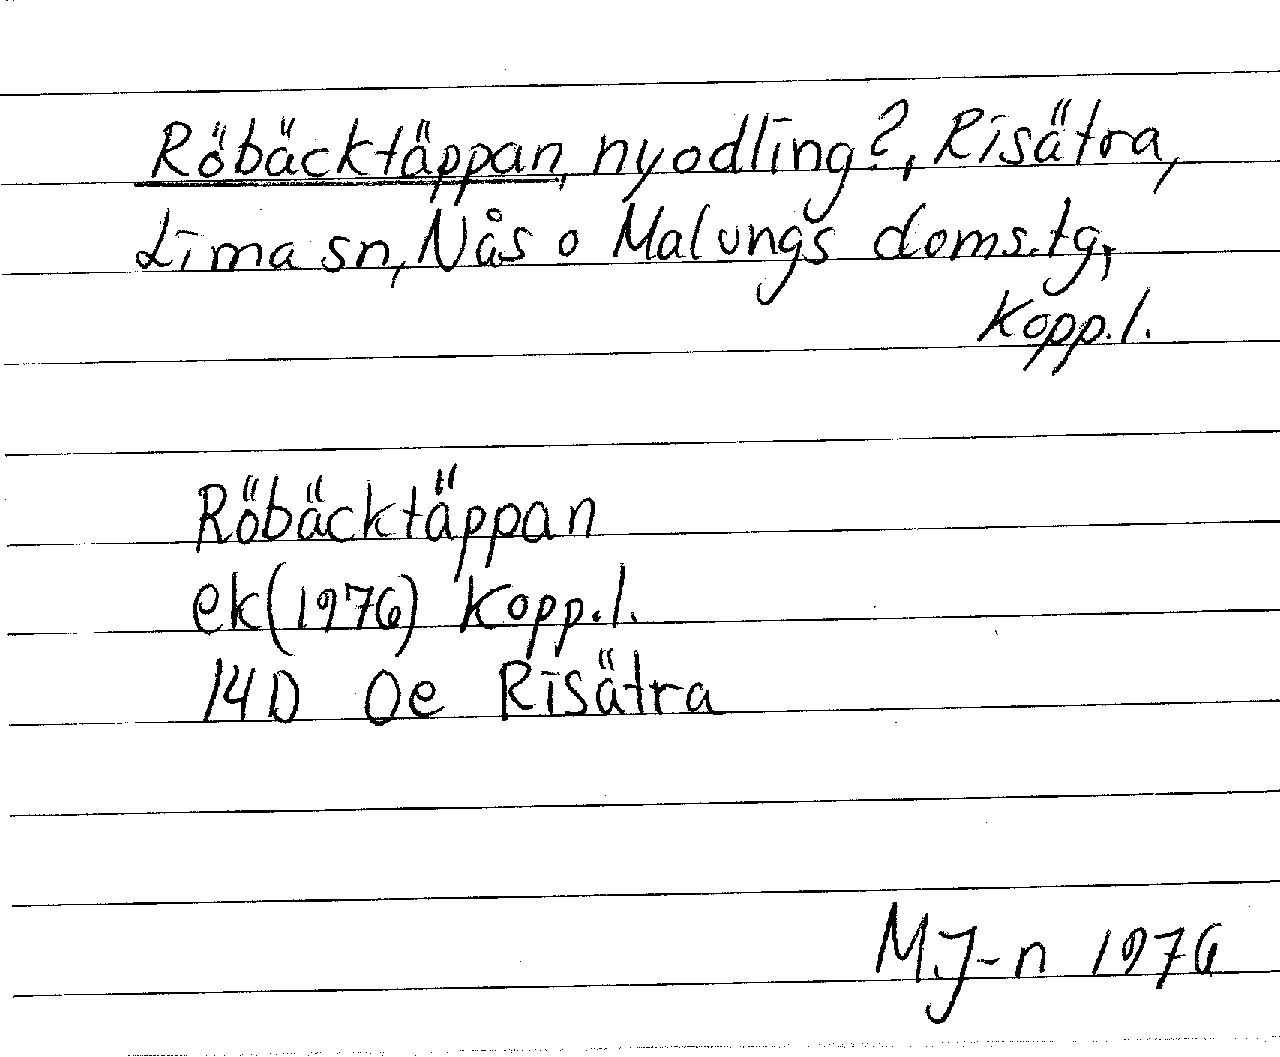 Röbäcktäppan, nyodling?, Risätra,
Lima sn, Nås o Malungs doms.tg,
Kopp.l.
Röbäcktäppan
ek(1976) Kopp.l.
14D 0e Risätra
M.J-n 1976